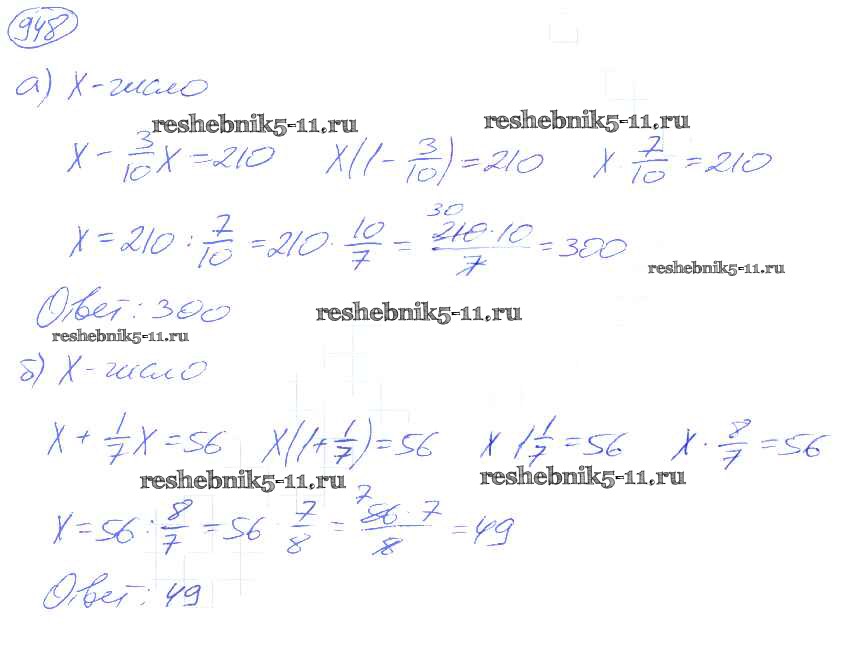 948
а) x - число
reshebnik5-11.ru reshebnik5-11.ru
x - 3/10 x = 210 x(1 - 3/10) = 210 x · 7/10 = 210
x = 210 : 7/10 = 210 · 10/7 = 30 210 · 10 / 7 = 300
reshebnik5-11.ru
Ответ: 300 reshebnik5-11.ru
reshebnik5-11.ru
б) x - число
x + 1/7 x = 56 x(1 + 1/7) = 56 x 1 1/7 = 56 x · 8/7 = 56
reshebnik5-11.ru reshebnik5-11.ru
x = 56 : 8/7 = 56 · 7/8 = 7 56 · 7 / 8 = 49
Ответ: 49